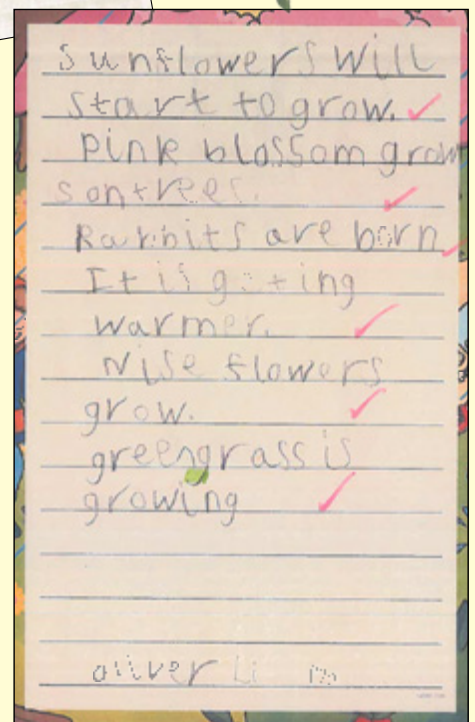 sunflowers will
start to grow.
pink blossom grow
s on trees.
Rabbits are born
It is getting
warmer.
Nise flowers
grow.
green grass is
growing
oliver